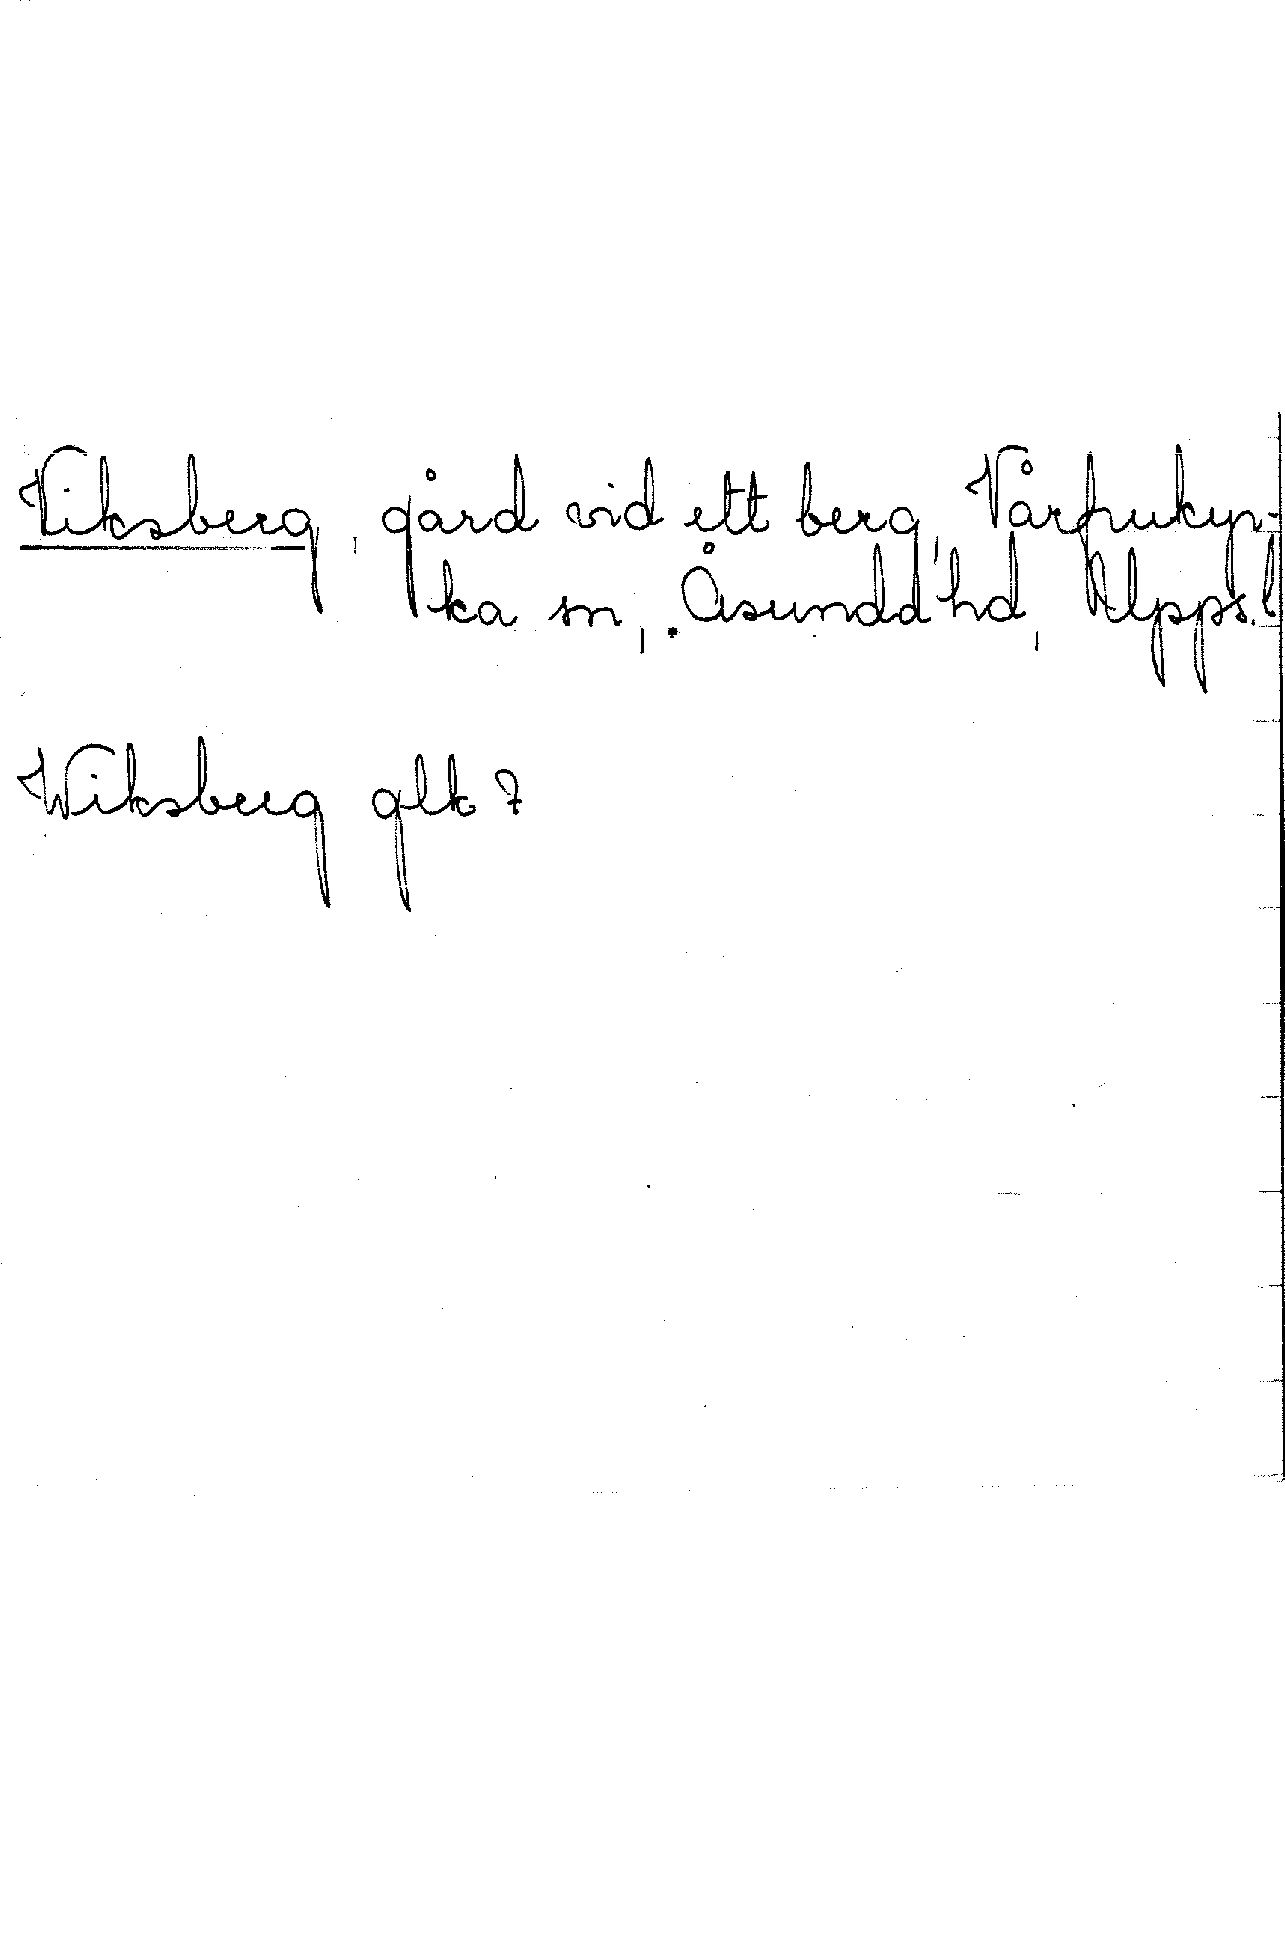 Viksberg, gård vid ett berg, Vårfrukyr-
ka sn, Åsunda hd, Upps. l
Wiksberg glk ?